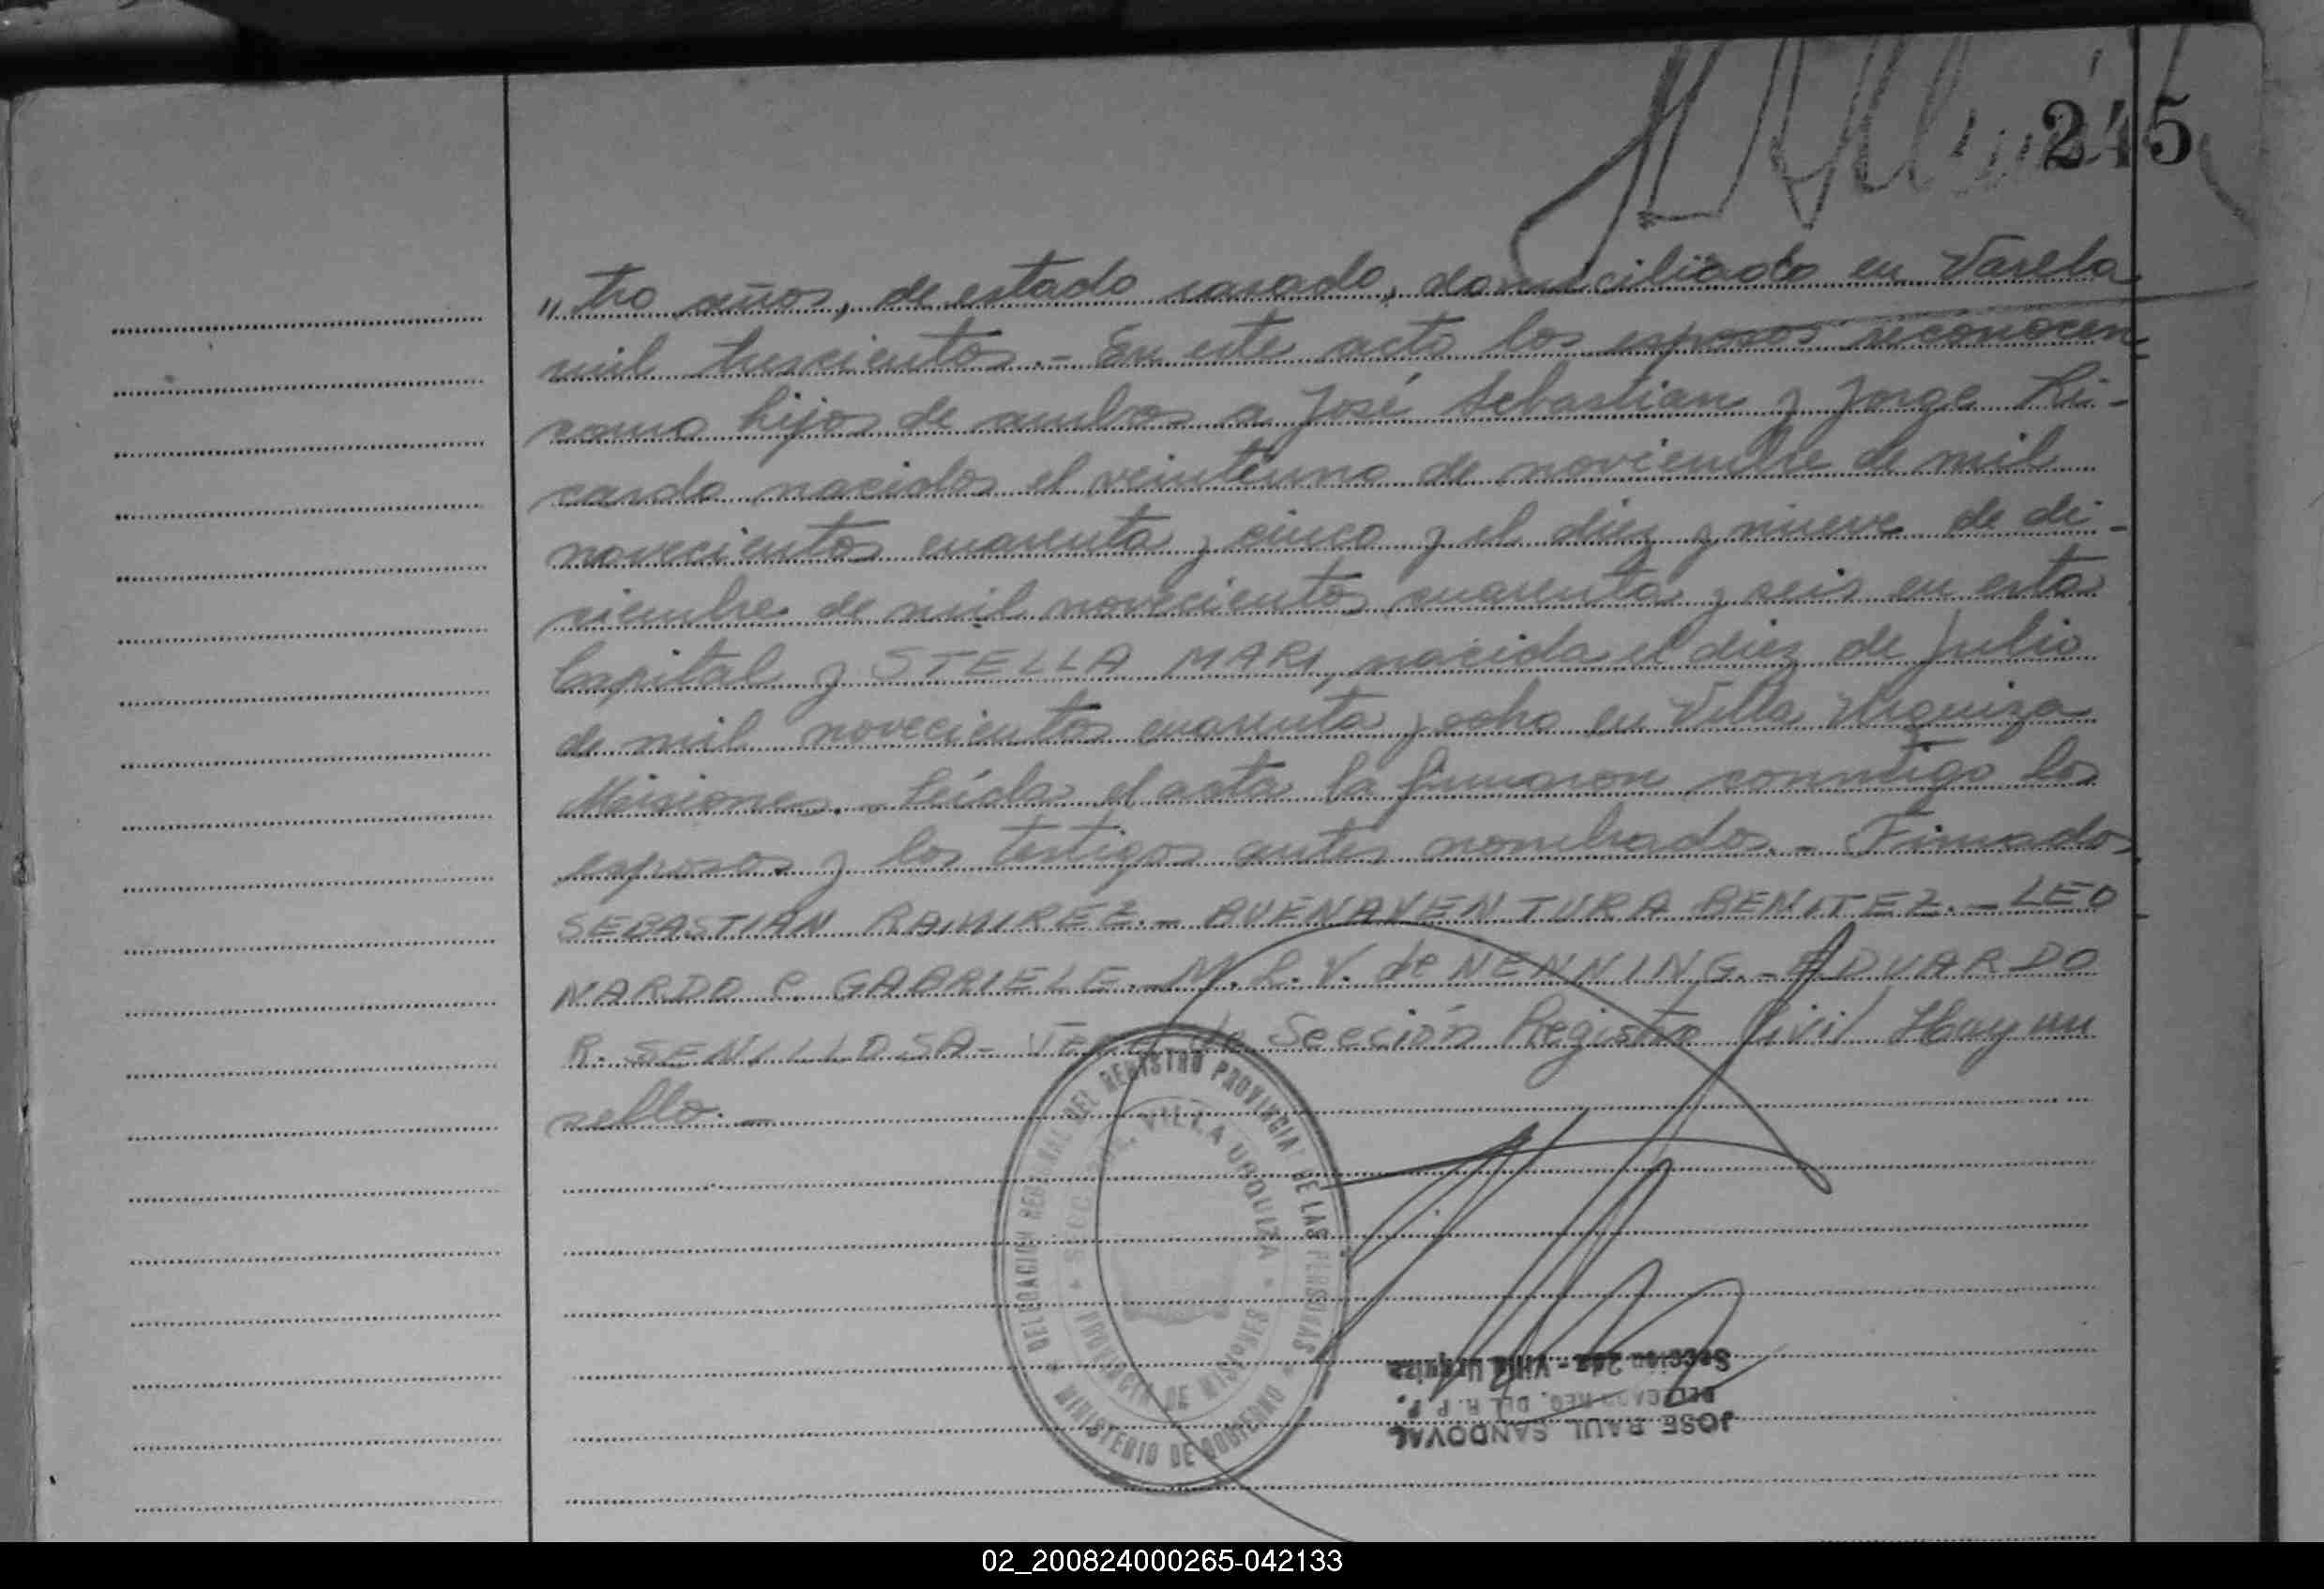 245
"tro años, de estado casado, domiciliado en Varela
mil trescientos.- En este acto los esposos reconocen
como hijos de ambos a José Sebastian y Jorge Ri-
cardo nacidos el veintiuno de noviembre de mil
novecientos cuarenta y cinco y el diez y nueve de di-
ciembre de mil novecientos cuarenta y seis en esta
Capital y STELLA MARI, nacida el diez de Julio
de mil novecientos cuarenta y ocho en Villa Urquiza
Misiones.- Leída el acta la firmaron conmigo los
esposos y los testigos antes nombrados.- Firmados
SEBASTIAN RAMIREZ.- BUENAVENTURA BENITEZ.- LEO
NARDO C. GABRIELE.- M. L. V. de NENNING.- EDUARDO
R. SENILLOSA- de Sección Registro Civil Hay un
sello.-
DELEGACION REGIONAL DEL REGISTRO PROVINCIAL DE LAS PERSONAS
SECC. VILLA URQUIZA
PROVINCIA DE MISIONES
MINISTERIO DE GOBIERNO
JOSE RAUL SANDOVAL
DELEGADO REG. DEL R. P. P.
Sección - Villa Urquiza
02_200824000265-042133